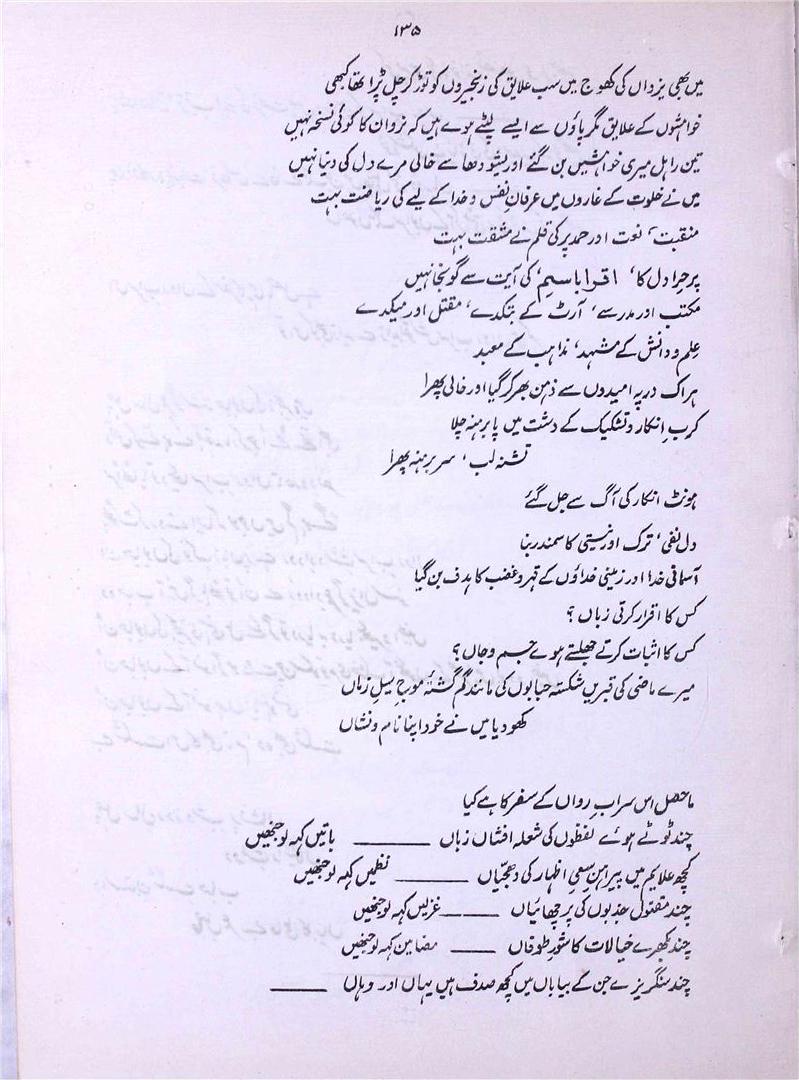 ۱۳۵
میں بھی یزداں کی کھوج میں سب علایق کی زنجیروں کو توڑ کر چل پڑا تھا کبھی
خواہشوں کے علایق مگر پاؤں سے ایسے لپٹے ہوے ہیں کہ نروان کا کوئی نسخہ نہیں
تین راہل میری خواہشیں بن گئے اور یشودھا سے خالی مرے دل کی دنیا نہیں
میں نے خلوت کے غاروں میں عرفانِ نفس و خدا کے لیے کی ریاضت بہت
منقبت، نعت اور حمد پر کی قلم نے مشقت بہت
پر حرا دل کا، اقرا باسمِ، کی آیت سے گونجا نہیں
مکتب اور مدرسے، آرٹ کے بتکدے، مقتل اور میکدے
علم و دانش کے مشہد، مذاہب کے معبد
ہر اک در پہ امیدوں سے ذہن بھر کر گیا اور خالی پھرا
کربِ انکار و تشکیک کے دشت میں پا برہنہ چلا
تشنہ لب، سر برہنہ پھرا
ہونٹ انکار کی آگ سے جل گئے
دل نفی، ترک اور نیستی کا سمندر بنا
آسمانی خدا اور زمینی خداؤں کے قہر و غضب کا ہدف بن گیا
کس کا اقرار کرتی زباں؟
کس کا اثبات کرتے جھلستے ہوے جسم و جاں؟
میرے ماضی کی قبریں شکستہ حبابوں کی مانند گم گشتۂ موجِ سیلِ زماں
کھو دیا میں نے خود اپنا نام و نشاں
ماحصل اس سرابِ رواں کے سفر کا ہے کیا
چند ٹوٹے ہوے لفظوں کی شعلہ افشاں زباں ــــــــ باتیں کہہ لو جنھیں
کچھ علایم میں پیراہنِ سعیِ اظہار کی دھجیاں ــــــــ نظمیں کہہ لو جنھیں
چند مقتول جذبوں کی پرچھائیاں ــــــــ غزلیں کہہ لو جنھیں
چند بکھرے خیالات کا شورِ طوفاں ــــــــ مضامین کہہ لو جنھیں
چند سنگریزے جن کے بیاباں میں کچھ صدف ہیں یہاں اور وہاں ــــــــ